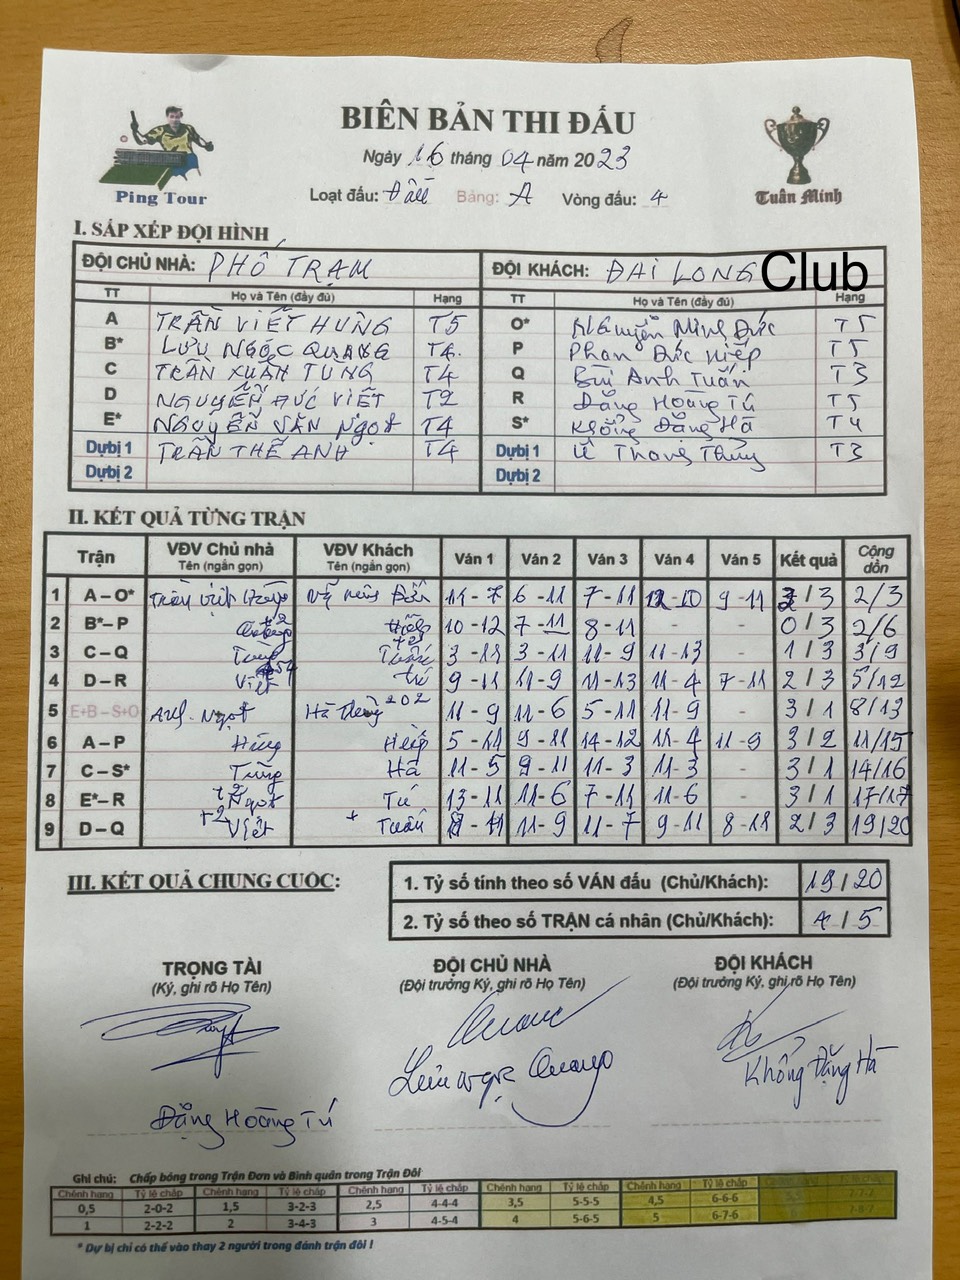 BIÊN BẢN THI ĐẤU
Ping Tour
Tuân Minh
Ngày 16 tháng 04 năm 2023
Loạt đấu: Đầu Bảng: A Vòng đấu: 4
I. SẮP XẾP ĐỘI HÌNH
ĐỘI CHỦ NHÀ: PHỐ TRẠM ĐỘI KHÁCH: ĐẠI LONG Club
TT Họ và Tên (đầy đủ) Hạng TT Họ và Tên (đầy đủ) Hạng
A TRẦN VIẾT HÙNG T5 O* Nguyễn Minh Đức T5
B* LƯU NGỌC QUANG T4 P Phan Đức Hiệp T5
C TRẦN XUÂN TÙNG T4 Q Bùi Anh Tuấn T3
D NGUYỄN ĐỨC VIẾT T2 R Đặng Hoàng Tú T5
E* NGUYỄN VĂN NGỌT T4 S* Khổng Đăng Hà T4
Dự bị 1 TRẦN THẾ ANH T4 Dự bị 1 Lê Thanh Thủy T3
Dự bị 2 Dự bị 2
II. KẾT QUẢ TỪNG TRẬN
Trận VĐV Chủ nhà Tên (ngắn gọn) VĐV Khách Tên (ngắn gọn) Ván 1 Ván 2 Ván 3 Ván 4 Ván 5 Kết quả Cộng dồn
1 A – O* Trần Viết Hùng 11 - 7 6 - 11 7 - 11 12 - 10 9 - 11 2 / 3 2/3
2 B* – P Quang +2 Hiệp 10 - 12 7 - 11 8 - 11 - - 0 / 3 2/6
3 C – Q Tùng +2 Tuấn 3 - 11 3 - 11 11 - 9 11 - 13 - 1 / 3 3/9
4 D – R Viết Tú 9 - 11 11 - 9 11 - 13 11 - 4 7 - 11 2 / 3 5/12
5 E+B – S+O Anh - Ngọt Hà Thủy 202 11 - 9 11 - 6 5 - 11 11 - 9 - 3 / 1 8/13
6 A – P Hùng Hiệp 5 - 11 9 - 11 14 - 12 11 - 4 11 - 9 3 / 2 11/15
7 C – S* Tùng Hà 11 - 5 9 - 11 11 - 3 11 - 3 - 3 / 1 14/16
8 E* – R +2 Ngọt Tú 13 - 11 11 - 6 7 - 11 11 - 6 - 3 / 1 17/17
9 D – Q +2 Viết + Tuấn 11 - 9 11 - 7 9 - 11 8 - 11 2 / 3 19/20
III. KẾT QUẢ CHUNG CUỘC:
1. Tỷ số tính theo số VÁN đấu (Chủ/Khách): 19 / 20
2. Tỷ số theo số TRẬN cá nhân (Chủ/Khách): 4 / 5
TRỌNG TÀI ĐỘI CHỦ NHÀ ĐỘI KHÁCH
(Ký, ghi rõ Họ Tên) (Đội trưởng Ký, ghi rõ Họ Tên) (Đội trưởng Ký, ghi rõ Họ Tên)
Quang
Lưu Ngọc Quang Khổng Đăng Hà
Đặng Hoàng Tú
Ghi chú: Chấp bóng trong Trận Đơn và Bình quân trong Trận Đôi
Chênh hạng Tỷ lệ chấp Chênh hạng Tỷ lệ chấp Chênh hạng Tỷ lệ chấp Chênh hạng Tỷ lệ chấp Chênh hạng Tỷ lệ chấp
0,5 2-0-2 1,5 3-2-3 2,5 4-4-4 3,5 5-5-5 4,5 6-6-6 7-7-7
1 2-2-2 2 3-4-3 3 4-5-4 4 5-6-5 5 6-7-6
* Dự bị chỉ có thể vào thay 2 người trong đánh trận đôi !